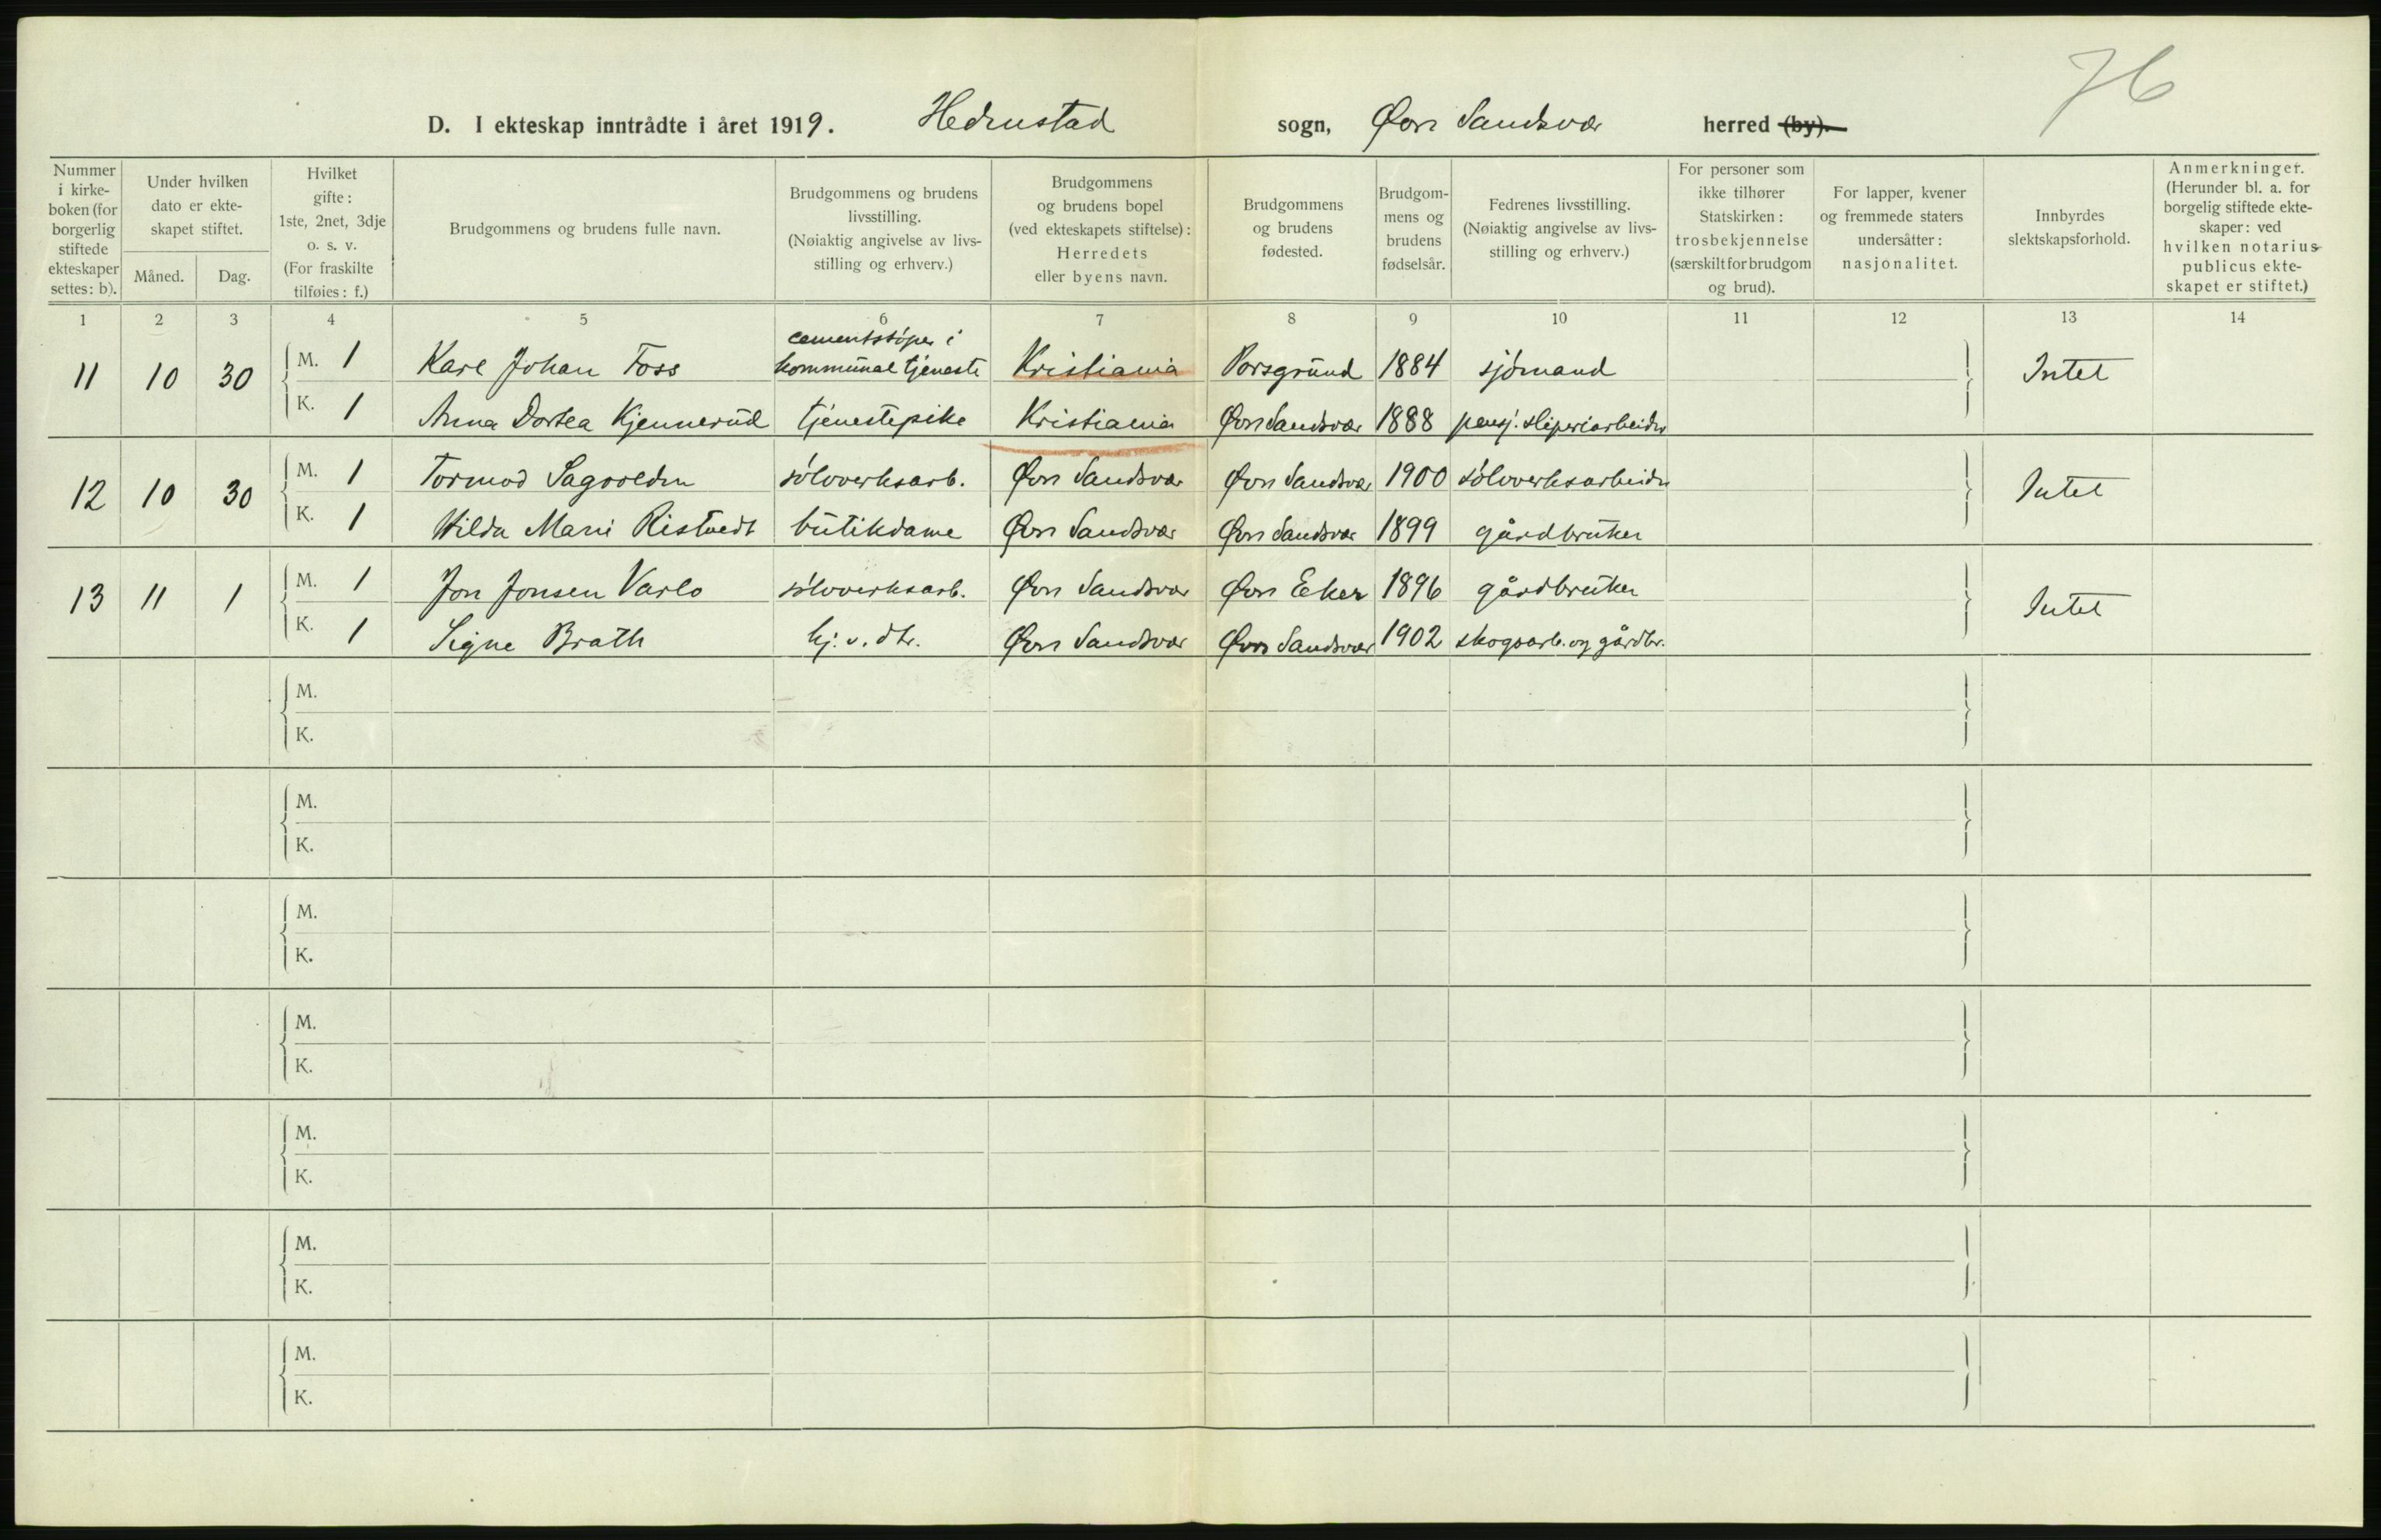 76
D. I ekteskap inntrådte i året 1919. Hedenstad sogn, Øvre Sandsvær herred (by).
Nummer i kirkeboken (for borgerlig stiftede ekteskaper settes: b).
Under hvilken dato er ekteskapet stiftet.
Måned.
Dag.
Hvilket gifte: 1ste, 2net, 3dje o. s. v. (For fraskilte tilføies: f.)
Brudgommens og brudens fulle navn.
Brudgommens og brudens livsstilling. (Nøiaktig angivelse av livsstilling og erhverv.)
Brudgommens og brudens bopel (ved ekteskapets stiftelse): Herredets eller byens navn.
Brudgommens og brudens fødested.
Brudgommens og brudens fødselsår.
Fedrenes livsstilling. (Nøiaktig angivelse av livsstilling og erhverv.)
For personer som ikke tilhører Statskirken: trosbekjennelse (særskilt for brudgom og brud).
For lapper, kvener og fremmede staters undersåtter: nasjonalitet.
Innbyrdes slektskapsforhold.
Anmerkninger. (Herunder bl. a. for borgelig stiftede ekteskaper: ved hvilken notarius publicus ekteskapet er stiftet.)
1 2 3 4 5 6 7 8 9 10 11 12 13 14
11 10 30 M. 1 Karl Johan Foss cementstøper i kommunal tjeneste Kristiania Porsgrund 1884 sjømand Intet
K. 1 Anna Dortea Kjennerud tjenestepike Kristiania Øvre Sandsvær 1888 pensj. sliperiarbeider
12 10 30 M. 1 Tormod Sagvolden sølvverksarb. Øvre Sandsvær Øvre Sandsvær 1900 sølvverksarbeider Intet
K. 1 Hilda Marie Ristvedt butikdame Øvre Sandsvær Øvre Sandsvær 1899 gårdbruker
13 11 1 M. 1 Jon Jonsen Varlo sølvverksarb. Øvre Sandsvær Øvre Eker 1896 gårdbruker Intet
K. 1 Signe Bråth hj. v. dtr. Øvre Sandsvær Øvre Sandsvær 1902 skogsarb. og gårdbr.
M.
K.
M.
K.
M.
K.
M.
K.
M.
K.
M.
K.
M.
K.